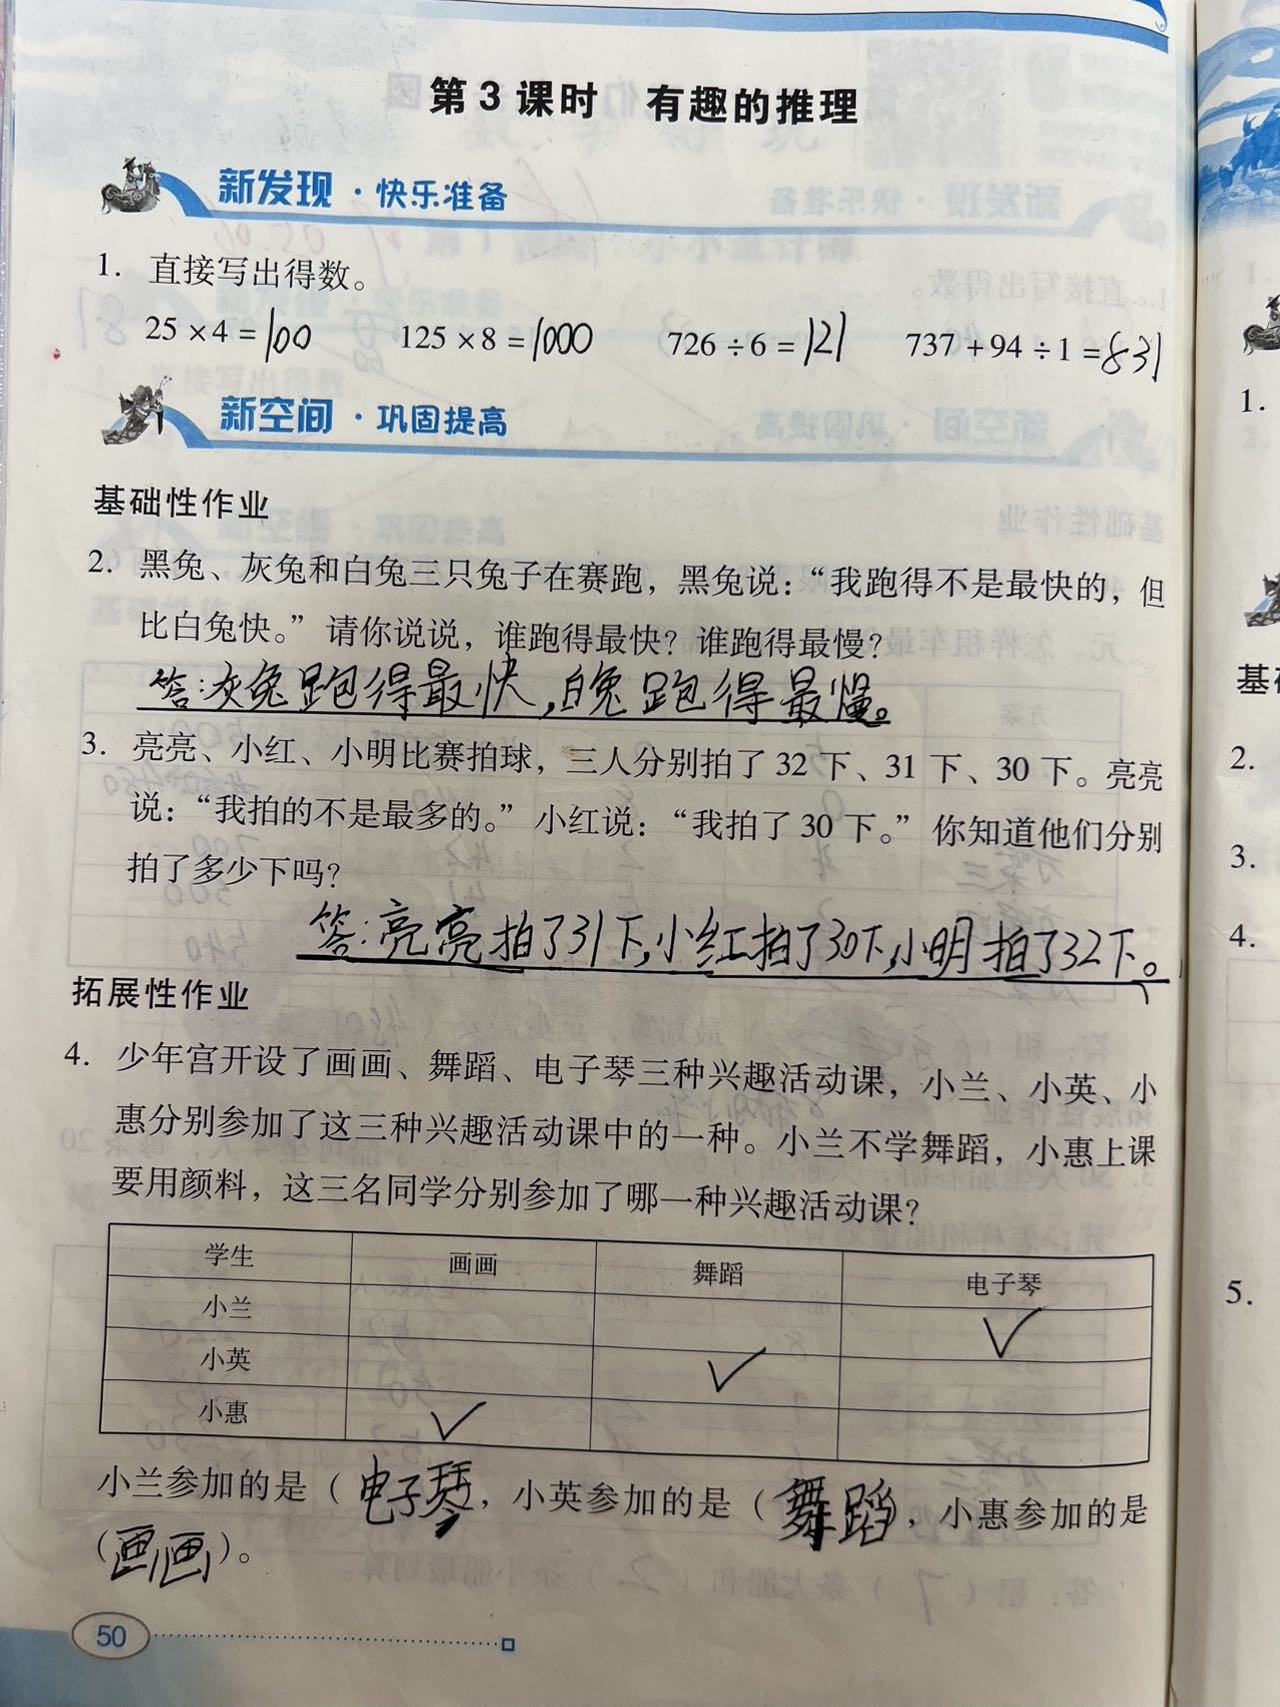 第3课时 有趣的推理
新发现·快乐准备
1. 直接写出得数。
25×4=100 125×8=1000 726÷6=121 737+94÷1=831
新空间·巩固提高
基础性作业
2. 黑兔、灰兔和白兔三只兔子在赛跑，黑兔说：“我跑得不是最快的，但
比白兔快。”请你说说，谁跑得最快？谁跑得最慢？
答：灰兔跑得最快，白兔跑得最慢。
3. 亮亮、小红、小明比赛拍球，三人分别拍了32下、31下、30下。亮亮
说：“我拍的不是最多的。”小红说：“我拍了30下。”你知道他们分别
拍了多少下吗？
答：亮亮拍了31下，小红拍了30下，小明拍了32下。
拓展性作业
4. 少年宫开设了画画、舞蹈、电子琴三种兴趣活动课，小兰、小英、小
惠分别参加了这三种兴趣活动课中的一种。小兰不学舞蹈，小惠上课
要用颜料，这三名同学分别参加了哪一种兴趣活动课？
学生 画画 舞蹈 电子琴
小兰 ✓
小英 ✓
小惠 ✓
小兰参加的是（电子琴，小英参加的是（舞蹈），小惠参加的是
（画画）。
50
1.
基
2.
3.
4.
5.